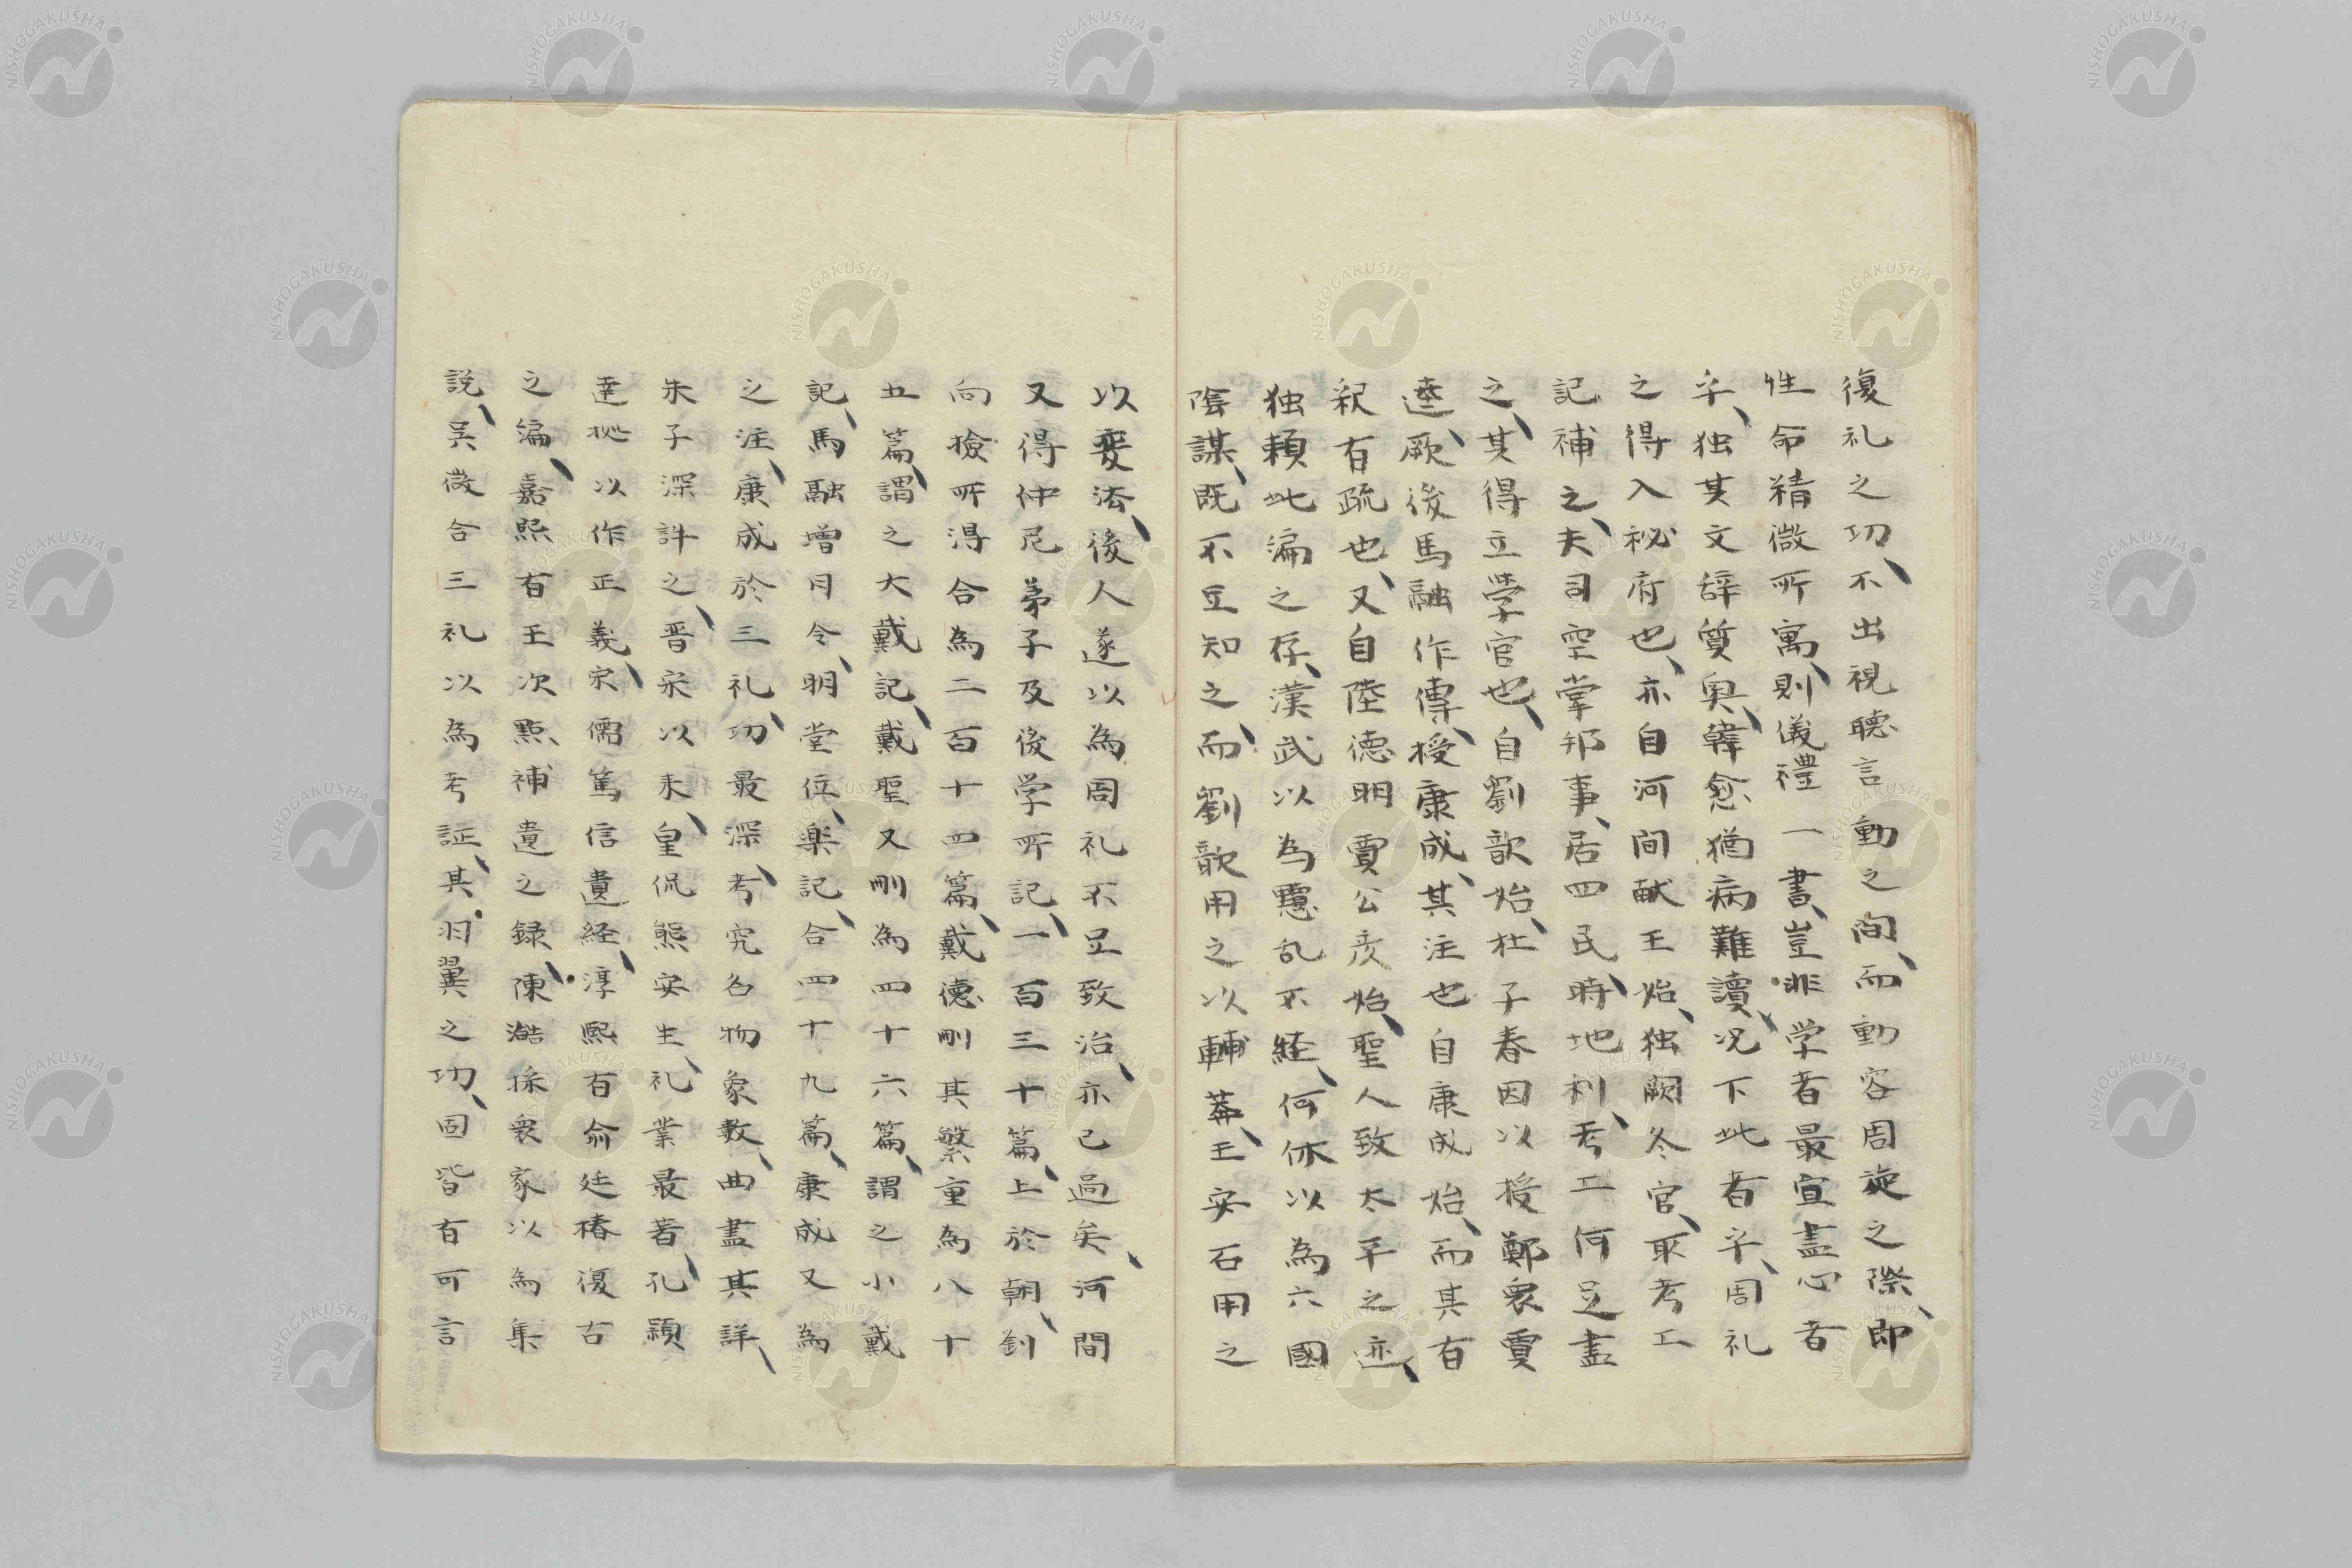 復礼之功、不出視聴言動之間、而動容周旋之際、即
性命精微所寓、則儀禮一書、豈非学者最宜盡心者
乎、独其文辞質奥、韓愈猶病難讀、况下此者乎、周礼
之得入秘府也、亦自河間献王始、独闕冬官、取考工
記補之、夫司空掌邦事、居四民、時地利、考工何足盡
之、其得立学官也、自劉歆始、杜子春因以授鄭衆賈
逵、厥後馬融作傳、授康成、其注也自康成始、而其有
釈有疏也、又自陸德明賈公彦始、聖人致太平之迹、
独頼此編之存、漢武以為瀆乱不経、何休以為六國
陰謀、既不足知之、而劉歆用之以輔莽、王安石用之
以変法、後人遂以為周礼不足致治、亦已過矣、河間
又得仲尼弟子及後学所記、一百三十篇、上於朝、劉
向撿所得合為二百十四篇、戴德刪其繁重為八十
五篇、謂之大戴記、戴聖又刪為四十六篇、謂之小戴
記、馬融増月令、明堂位、楽記、合四十九篇、康成又為
之注、康成於三礼、功最深、考究名物象数、曲盡其詳、
朱子深許之、晋宋以来、皇侃熊安生、礼業最著、孔穎
達秘以作正義、宋儒篤信遺経、淳熙有俞廷椿復古
之編、嘉熙有王次點補遺之録、陳澔採衆家以為集
説、吴澂合三礼以為考証、其羽翼之功、固皆有可言